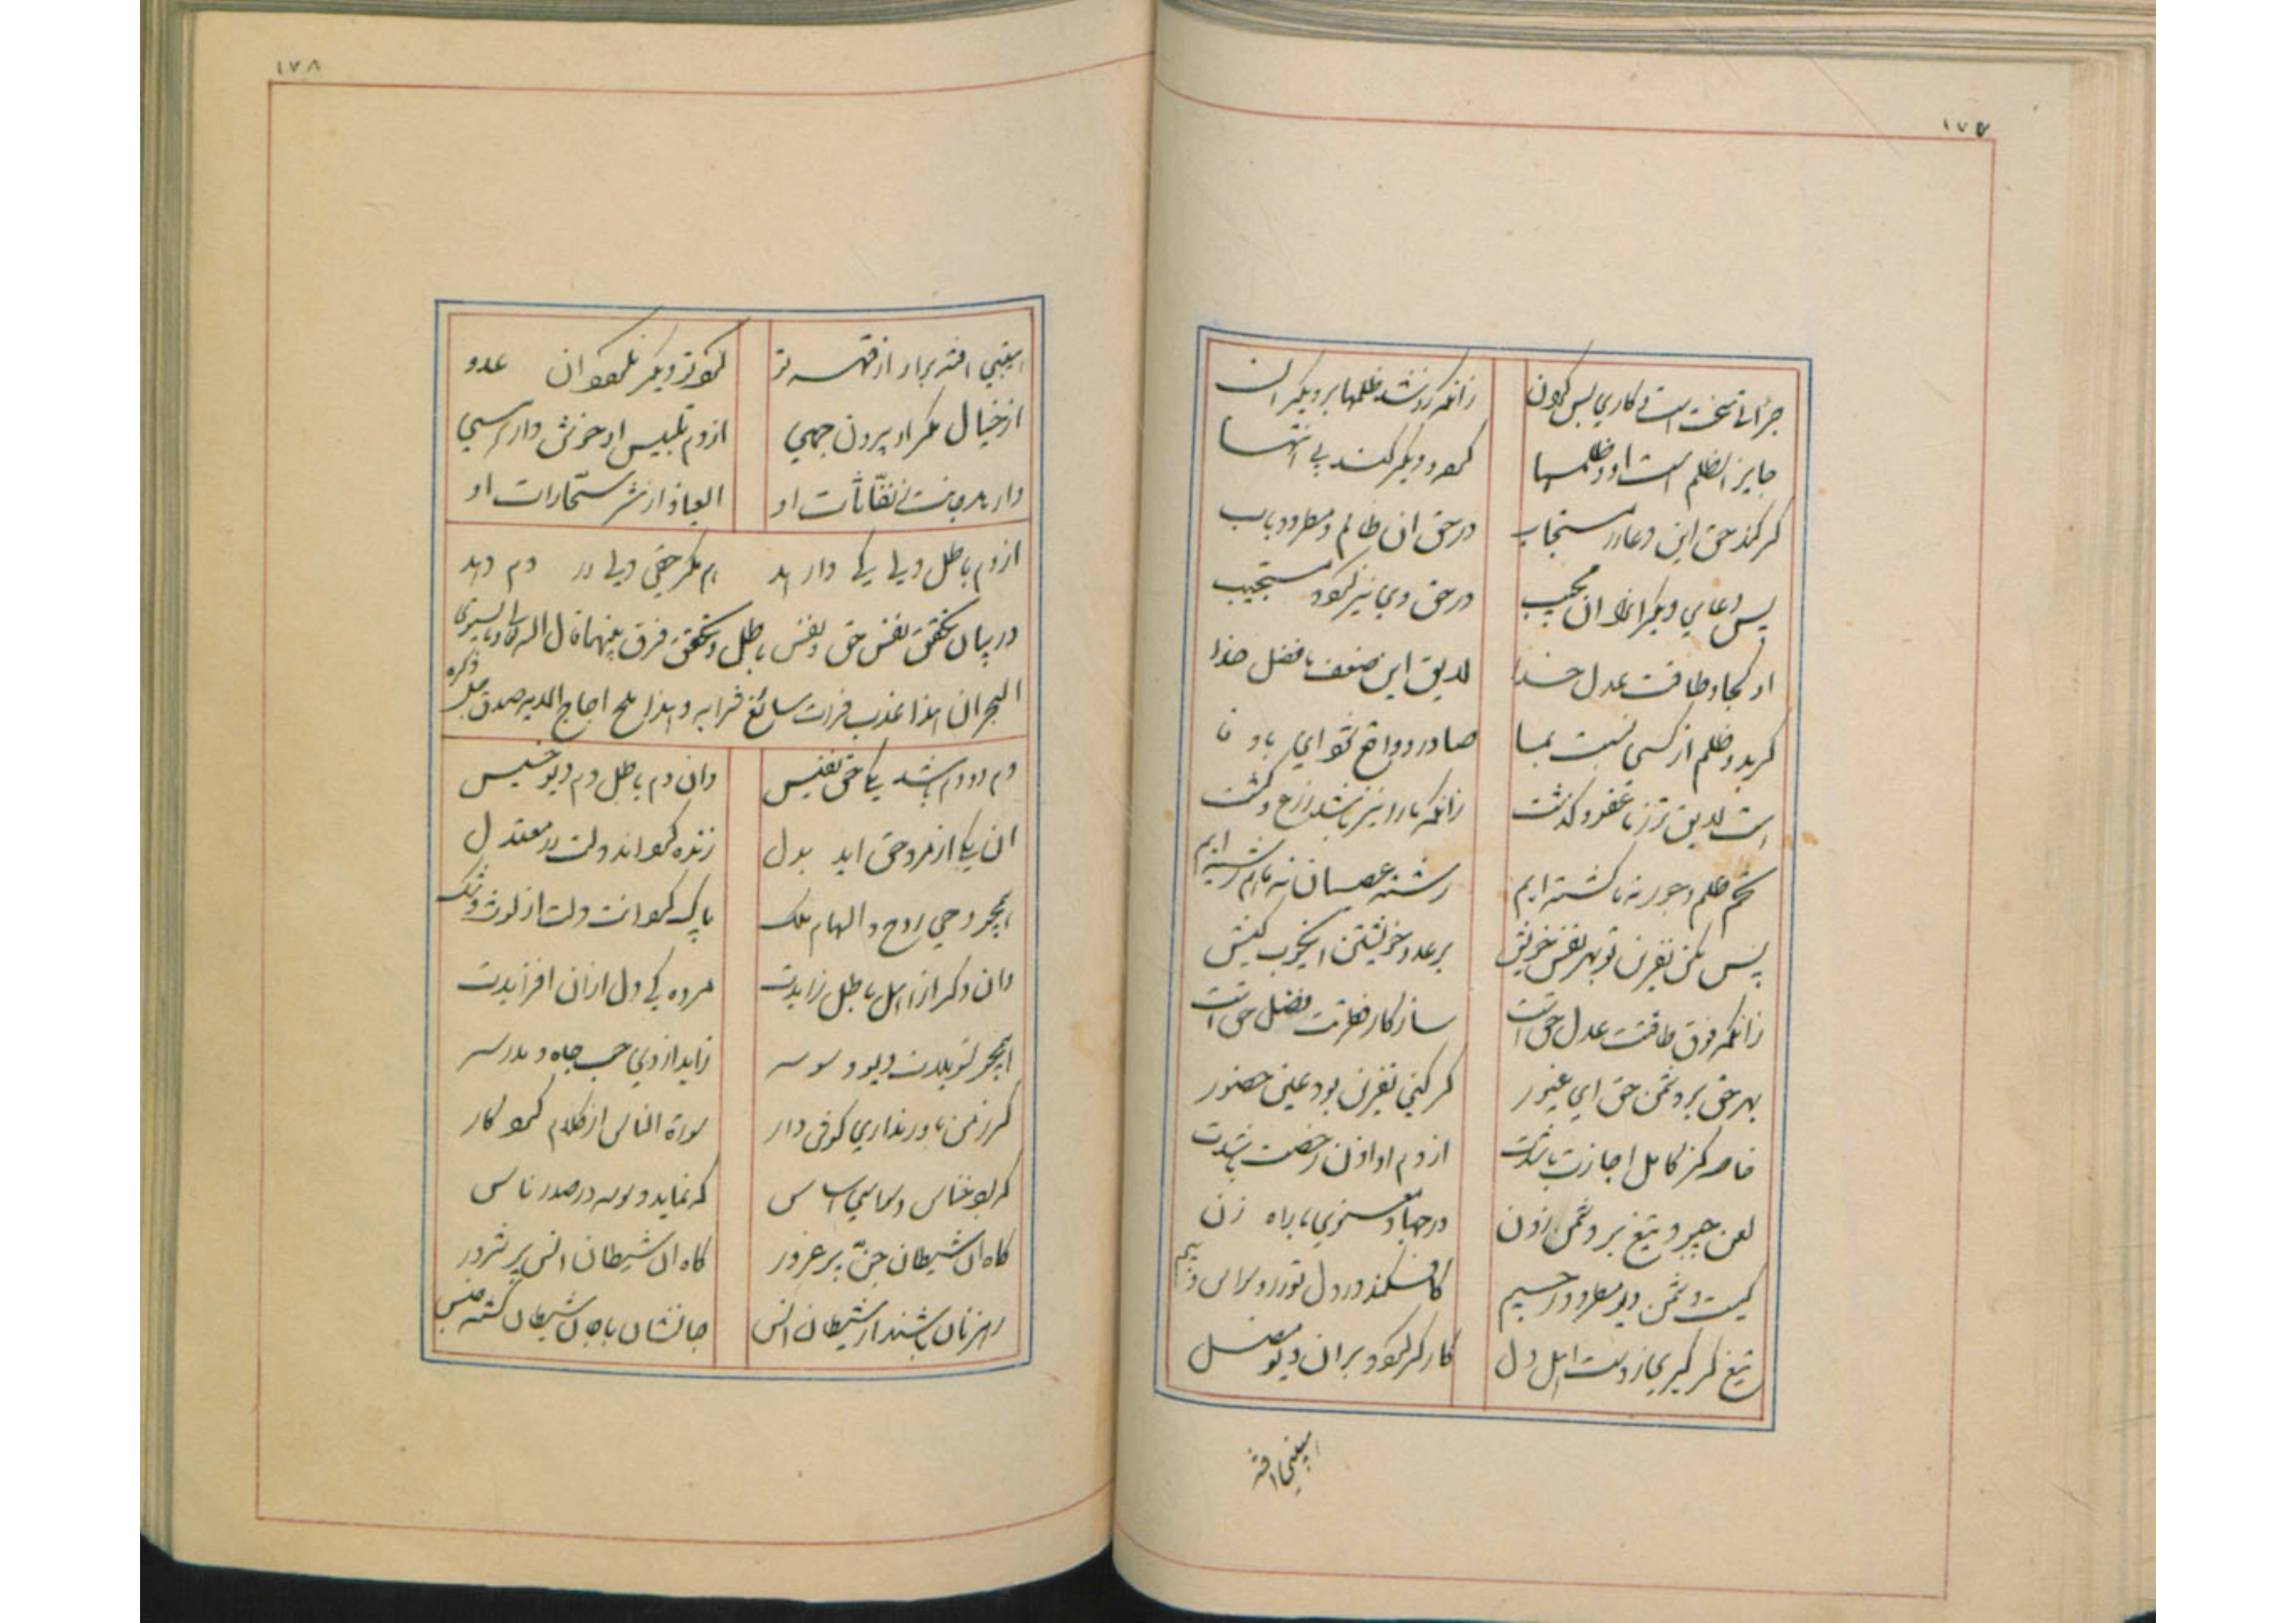 ۱۷۷
جراتی سخت است و کاری بس کران زانکه کردند ظلمها بر دیگران
جایز الظلم است او و ظلمها دیگر کند بی انتها
گر کند حق این دعا را مستجاب در حق ان ظالم و مطرود باب
پس دعای دیگرانرا ان مجیب در حق وی نیز مستجیب
او کجا و طاقت عدل خدا لایق این ضعف ما فضل خدا
گر بد و ظلم از کسی نسبت بما صادر و واقع شود ای با وفا
است لایق تر ز ما عفو و گذشت زانکه ما را نیز باشد زرع و کشت
تخم ظلم و جور نه ما کشته ایم رشته عصیان نه ما هم رشته ایم
پس مکن نفرین تو بهر نفس خویش بر عدو خویشتن ای خوب کیش
زانکه فوق طاقتت عدل حق است سازگار فطرتت فضل حق است
بهر حق بر دشمن حق ای غیور گر کنی نفرین بود عین حضور
خاصه کز کامل اجازت باشدت از دم او اذن رخصت باشدت
لعن چبود تیغ بر دشمن زدن در جهاد معنوی با راه زن
کیست دشمن دیو مطرود رجیم کافکند در دل تو را وسواس و بیم
تیغ گر گیری ز دست اهل دل کارگر بر ان دیو مضل
ایمنی افتد
۱۷۸
ایمنی افتد برار از قهر تو دیگر ان عدو
از خیال مکر او بیرون جهی از دم تلبیس او خوش وارهی
وارهد جانت ز نفاثات او العیاذ از شر سحارات او
از دم باطل ولی کی وارهد هم مگر حقی ولی در دم دهد
در بیان تحقیق نفس حق و نفس باطل و تحقیق فرق بینهما قال الله تعالی و ما یستوی
البحران هذا عذب فرات سائغ شرابه و هذا ملح اجاج الایه صدق جل ذکره
دم دو دم باشد یکی حق نفیس وان دم باطل دم دیو خسیس
ان یکی از مرد حق اید بدل زنده اند دلت در معتدل
همچو وحی روح و الهام ملک پاک دلت از لوث و شک
وان دگر از اهل باطل زایدت مرده کی دل از ان افزایدت
همچو تسویلات دیو و وسوسه زاید از وی حب جاه و مدرسه
گر ز من باور نداری گوش دار سورة الناس از کلام کردگار
که بود خناس وسواسی اساس که نماید وسوسه در صدر ناس
گاه ان شیطان جن پر غرور گاه ان شیطان انس پر شرور
رهزنان باشند از شیطان انس جانشان با جان شیطان گشته جنس